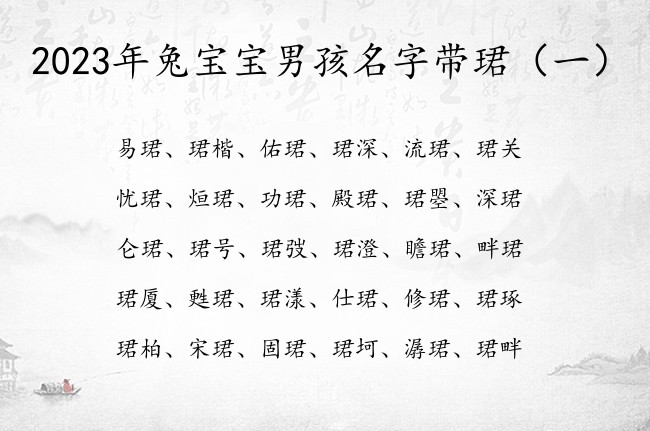 2023年兔宝宝男孩名字带珺（一）
易珺、珺楷、佑珺、珺深、流珺、珺关
忧珺、烜珺、功珺、殿珺、珺曌、深珺
仑珺、珺号、珺弢、珺澄、瞻珺、畔珺
珺厦、甦珺、珺漾、仕珺、修珺、珺琢
珺柏、宋珺、固珺、珺坷、潺珺、珺畔